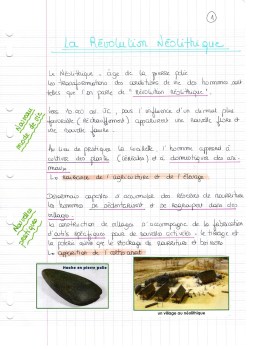 1
La Révolution Néolithique
Le Néolithique = âge de la pierre polie
Les transformations des conditions de vie des hommes sont
telles que l'on parle de "Révolution néolithique".
Nouveau
mode de vie
Vers 10 000 av JC, sous l'influence d'un climat plus
favorable (réchauffement) apparaissent une nouvelle faune et
une nouvelle flore.
Au lieu de pratiquer la cueillette, l'homme apprend à
cultiver des plantes (céréales) et à domestiquer des ani-
maux.
La naissance de l'agriculture et de l'élevage
Nouvelles
pratiques
Désormais capables d'accumuler des réserves de nourriture
les hommes se sédentarisent et se regroupent dans des
villages.
La construction de villages s'accompagne de la fabrication
d'outils spécifiques pour de nouvelles activités : le tissage et
la poterie ainsi que le stockage de nourriture et boissons
L'apparition de l'artisanat
Hache en pierre polie
un village au néolithique